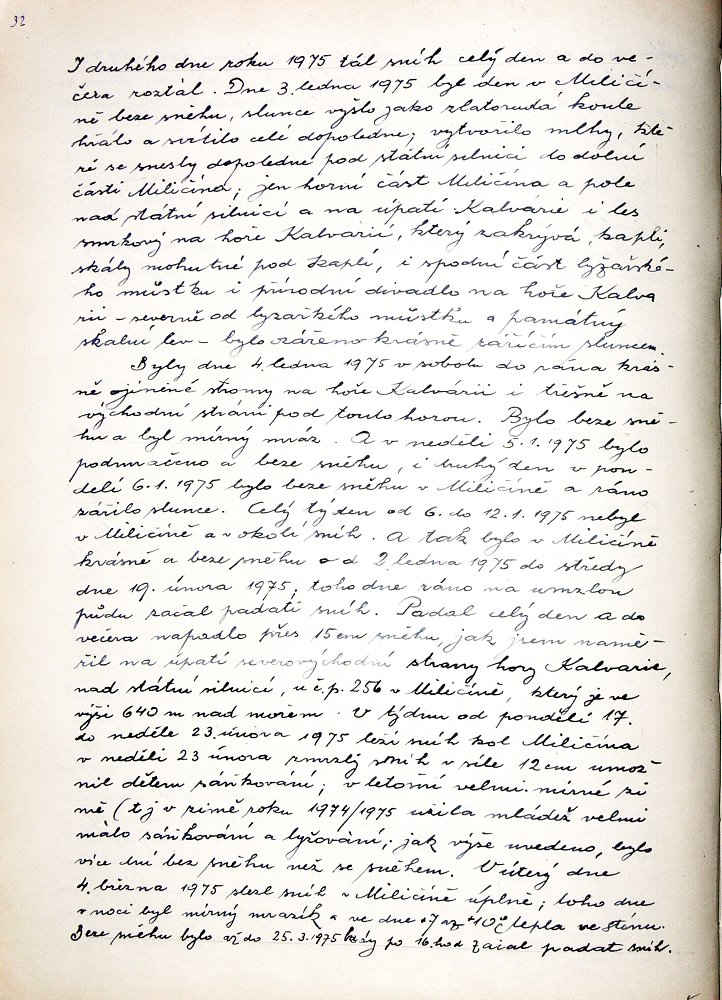 92
I druhého dne roku 1975 tál sníh celý den a do ve-
čera roztál. Dne 3. ledna 1975 byl den v Miličí-
ně beze sněhu, slunce vyšlo jako zlatorudá koule
hřálo a svítilo celé dopoledne; vytvořilo mlhy, kte-
ré se snesly dopoledne pod státní silnici do dolní
části Miličína; jen horní část Miličína a pole
nad státní silnicí a na úpatí Kalvárie i les
smrkový na hoře Kalvarii, který zakrývá kapli,
skály mohutné pod kaplí, i spodní část lyžařské-
ho můstku i přírodní divadlo na hoře Kalva
rii - severně od lyzařkého můstku a památný
skalní lev - bylo ozářeno krásně zářícím sluncem.
Byly dne 4. ledna 1975 v sobotu do rána krás-
ně ojíněné stromy na hoře Kalvárii i třešně na
východní stráni pod touto horou. Bylo beze sně-
hu a byl mírný mráz. A v neděli 5.1.1975 bylo
podmračeno a beze sněhu, i druhý den v pon-
delí 6.1.1975 bylo beze sněhu v Miličíně a ráno
zářilo slunce. Celý týden od 6. do 12.1.1975 nebyl
v Miličíně a v okolí sníh. A tak bylo v Miličíně
krásně a beze sněhu od 2. ledna 1975 do středy
dne 19. února 1975; toho dne ráno na umrzlou
půdu začal padati sníh. Padal celý den a do
večera napadlo přes 15 cm sněhu, jak jsem namě-
řil na úpatí severovýchodní strany hory Kalvarie,
nad státní silnicí, u č.p. 256 v Miličíně, který je ve
výši 640 m nad mořem. V týdnu od pondělí 17.
do neděle 23. února 1975 leží sníh kol Miličína
v neděli 23 února zmrzlý sníh v síle 12 cm umož
nil dětem sáňkování; v letošní velmi mírné zi
mě (tj v zimě roku 1974/1975 užila mládež velmi
málo sáňkování a lyžování; jak výše uvedeno, bylo
více dní bez sněhu než se sněhem. V úterý dne
4. března 1975 slezl sníh v Miličíně úplně; toho dne
v noci byl mírný mrazík a ve dne +7 až +10°C tepla ve stínu.
Beze sněhu bylo až do 25.3.1975 kdy po 16. hod začal padat sníh.